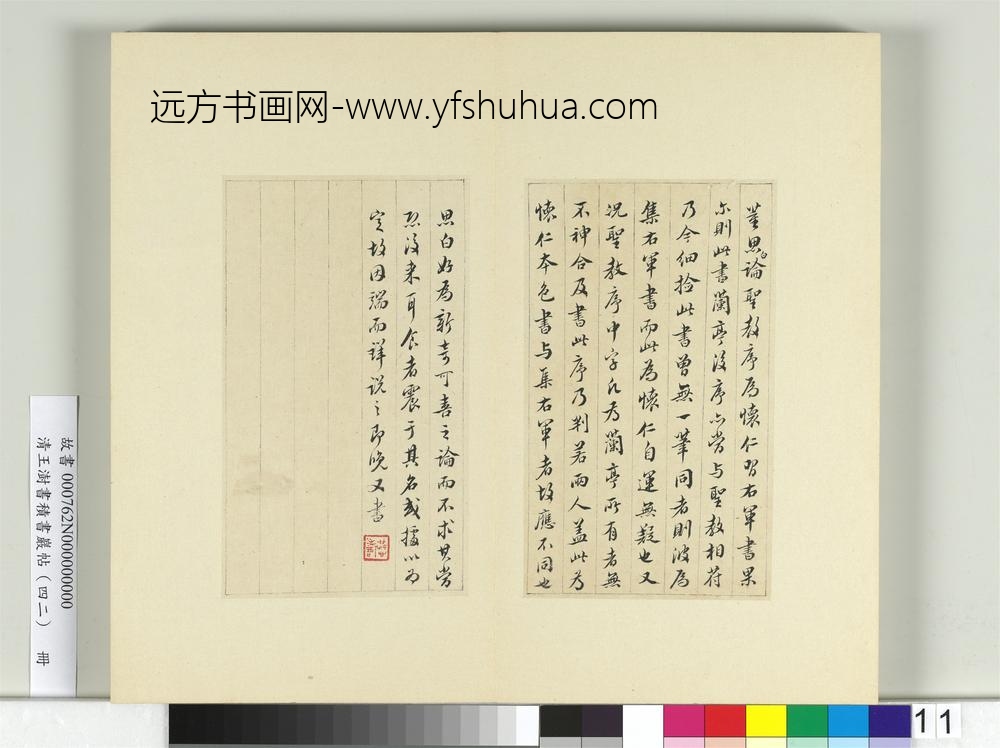 远方书画网-www.yfshuhua.com
董思白論聖教序為懷仁習右軍書果
尒則此書蘭亭後序亦當與聖教相符
乃今細撿此書曾無一筆同者則彼為
集右軍書而此為懷仁自運無疑也又
況聖教序中字凡為蘭亭所有者無
不神合及書此序乃判若兩人蓋此為
懷仁本色書與集右軍者故應不同也
思白好為新奇可喜之論而不求其當
後來耳食者震于其名或據以為
定故因端而詳說之即晚又書
故書 000762N000000000
清王澍書積書巖帖（四二） 冊
11